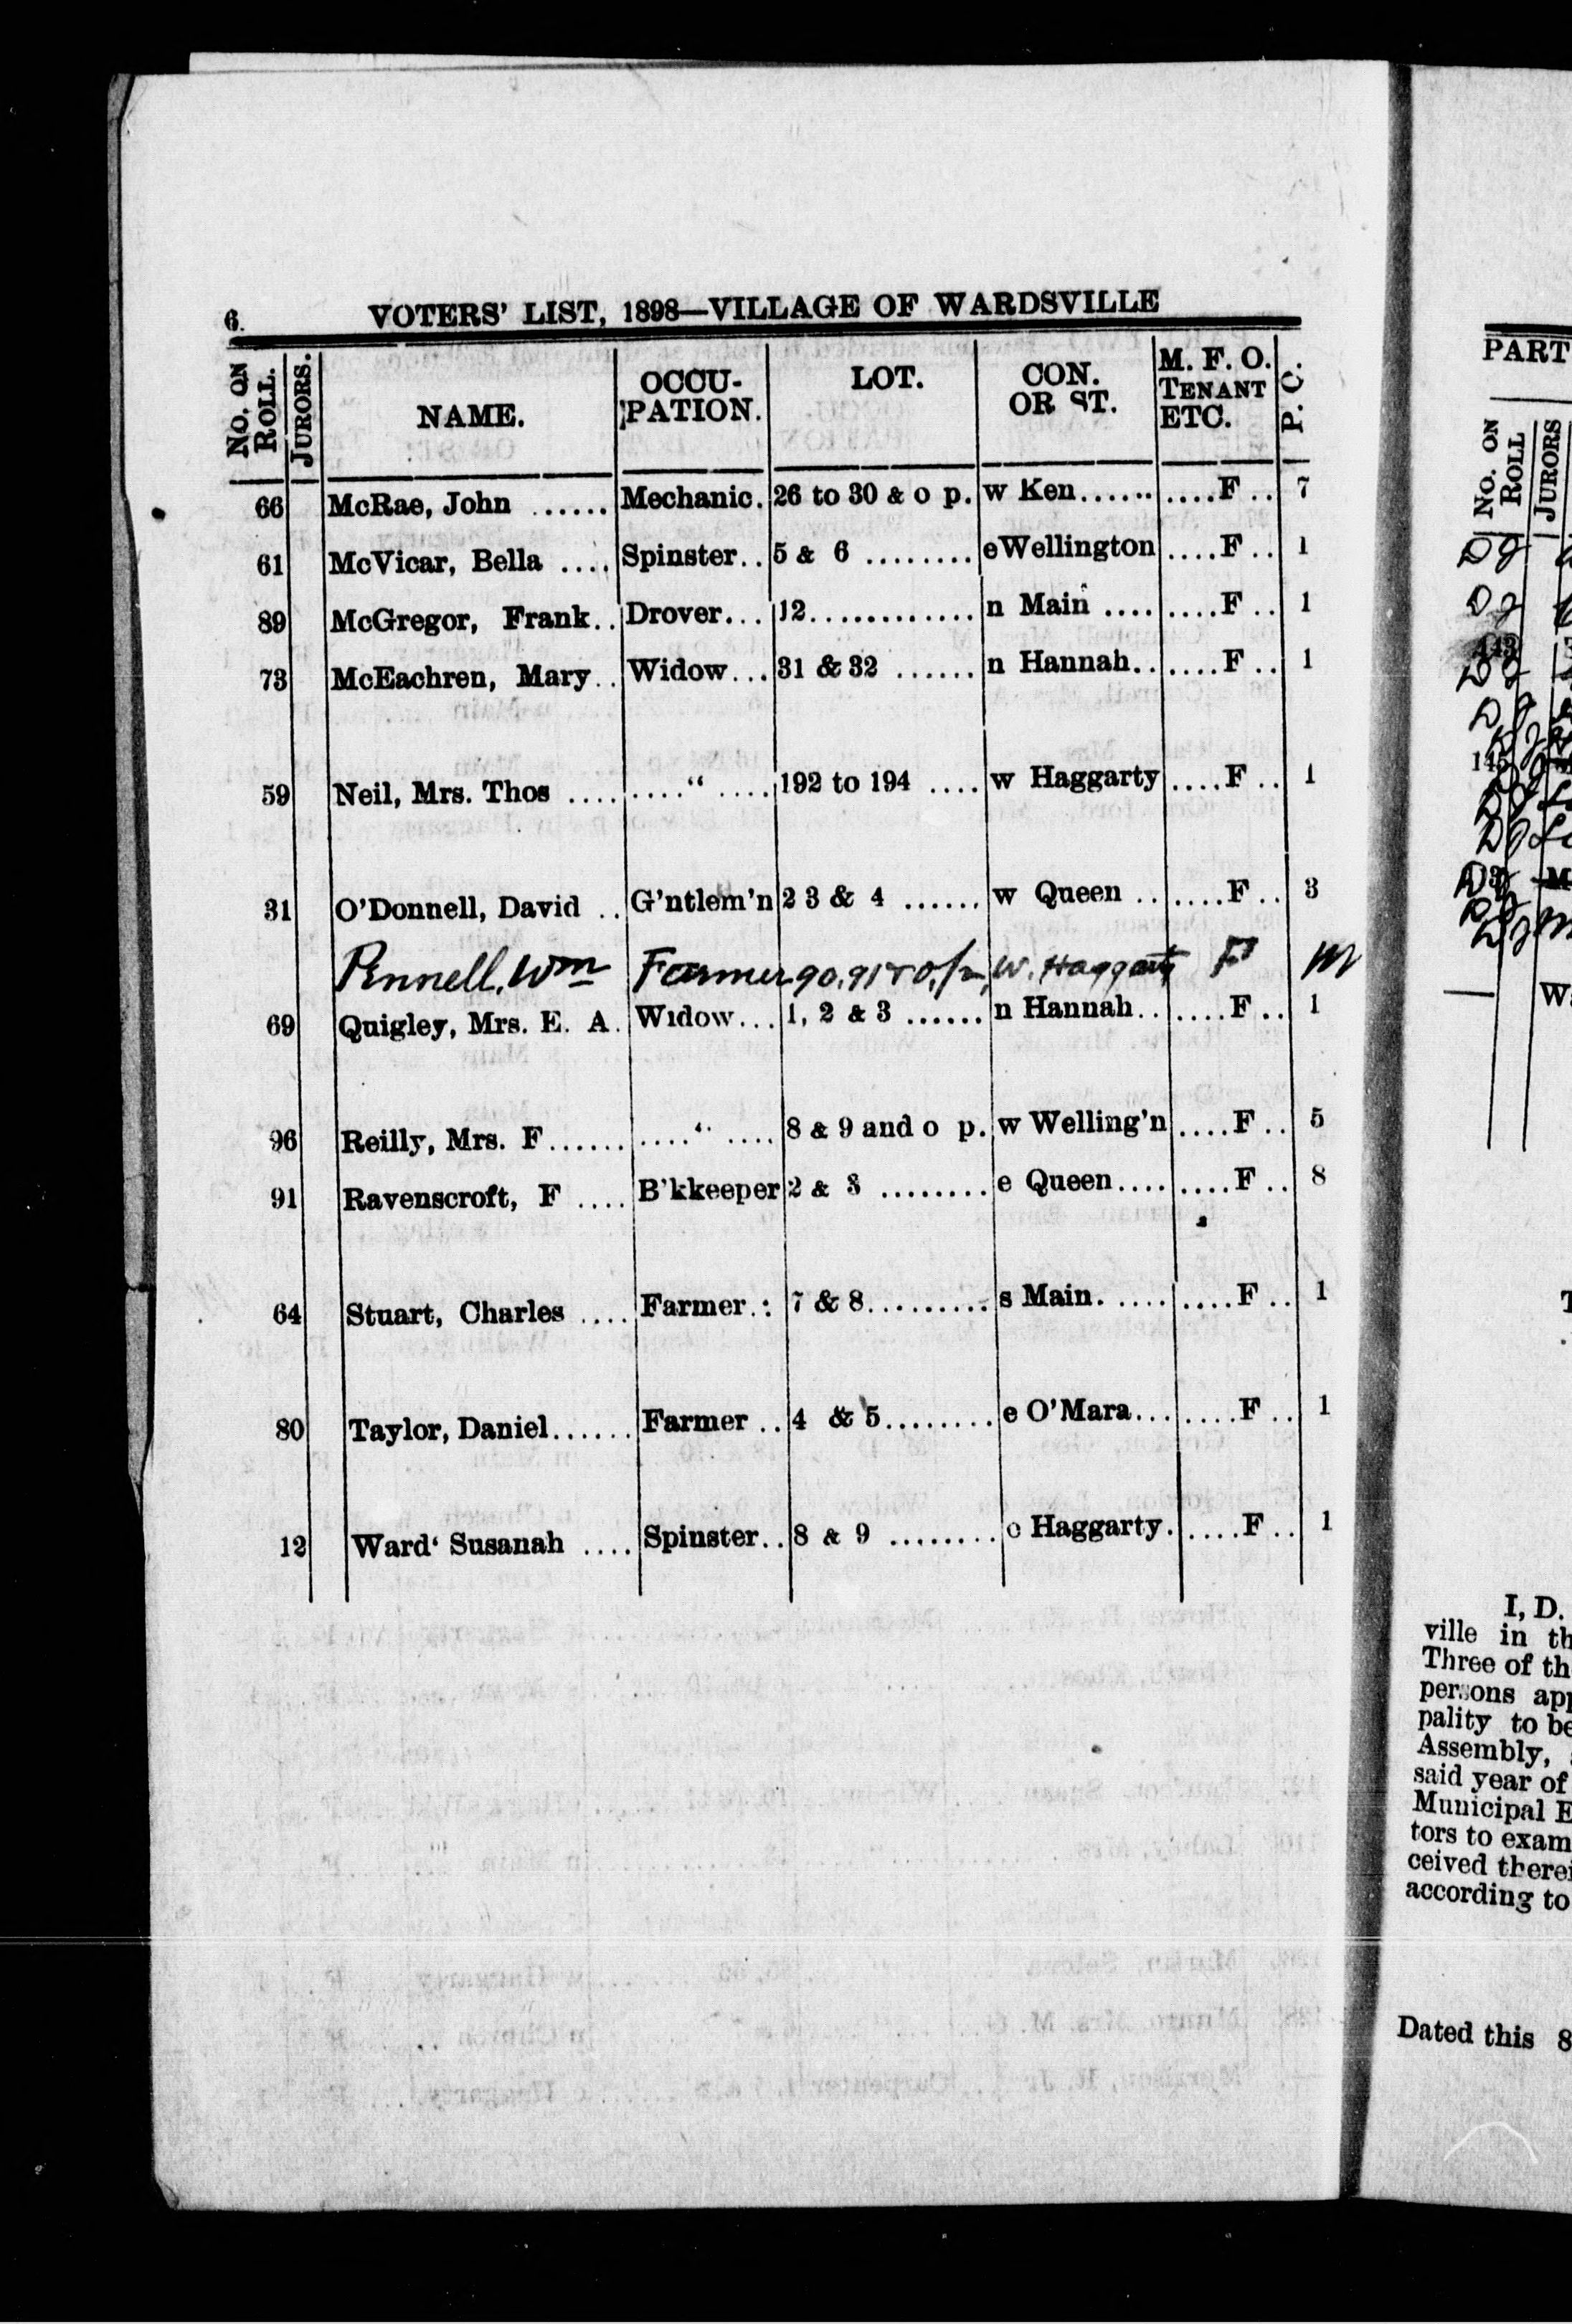 6. VOTERS' LIST, 1898—VILLAGE OF WARDSVILLE
No. ON ROLL. JURORS. NAME. OCCU-PATION. LOT. CON. OR ST. M. F. O. TENANT ETC. P. C.
66 McRae, John ...... Mechanic. 26 to 30 & o p. w Ken...... ....F.. 7
61 McVicar, Bella .... Spinster.. 5 & 6 ........ eWellington ....F.. 1
89 McGregor, Frank.. Drover... 12............ n Main .... ....F.. 1
73 McEachren, Mary.. Widow... 31 & 32 ...... n Hannah.. ....F.. 1
59 Neil, Mrs. Thos .... ...." .... 192 to 194 .... w Haggarty ....F.. 1
31 O'Donnell, David .. G'ntlem'n 2 3 & 4 ...... w Queen .. ....F.. 3
Pennell, Wm Farmer 90, 91 W. Haggarty F M
69 Quigley, Mrs. E. A. Widow... 1, 2 & 3 ...... n Hannah.. ....F.. 1
96 Reilly, Mrs. F...... ...." .... 8 & 9 and o p. w Welling'n ....F.. 5
91 Ravenscroft, F .... B'kkeeper 2 & 3 ........ e Queen.... ....F.. 8
64 Stuart, Charles .... Farmer.: 7 & 8......... s Main. ..... ....F.. 1
80 Taylor, Daniel...... Farmer .. 4 & 5........ e O'Mara... ....F.. 1
12 Ward' Susanah .... Spinster.. 8 & 9 ........ o Haggarty. ....F.. 1
PART
No. ON ROLL JURORS
I, D.
ville in th
Three of th
persons app
pality to be
Assembly,
said year of
Municipal E
tors to exam
ceived therei
according to
Dated this 8